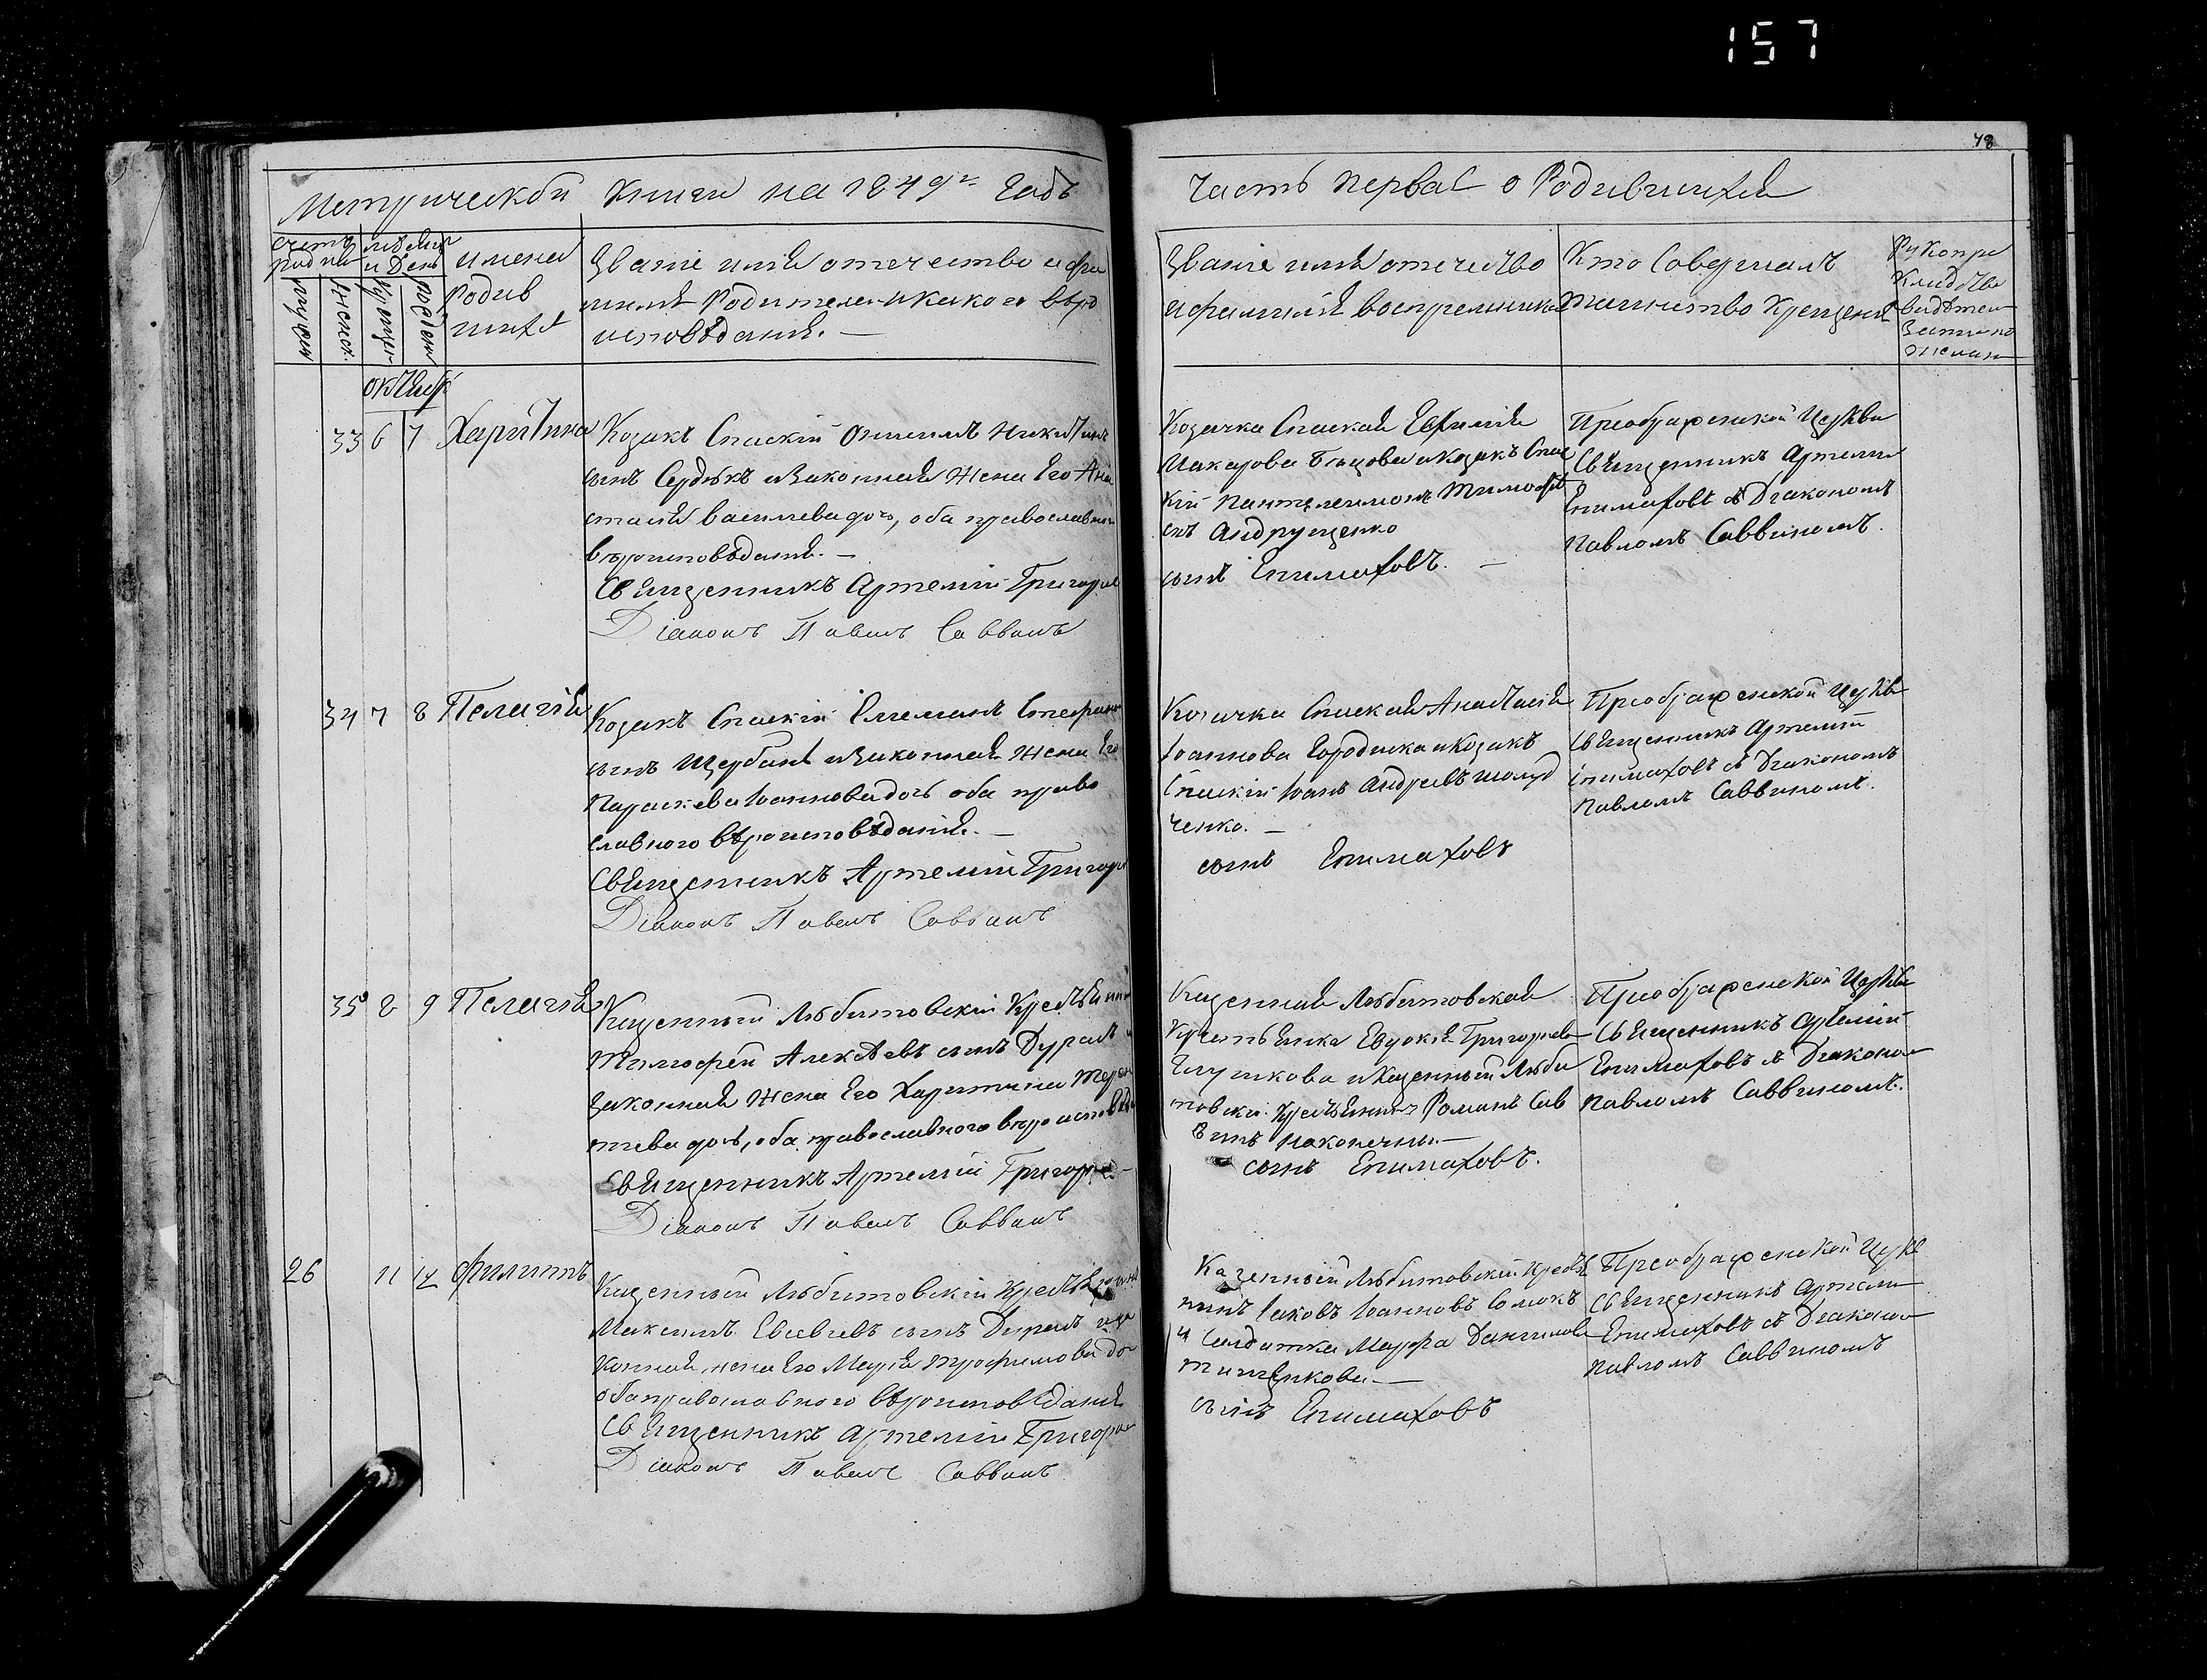 157
78
Метрической Книги на 1849й Годъ
Часть первая о Родившихся
Счетъ родив
мѣсяцъ и День
мужеск
женск:
рожден
имена Родив шихся
Званіе имя отечество и фа
милія Родителей и какого вѣро
исповѣданія. —
Званіе имя отечество
и фамилія воспреемниковъ
Кто Совершалъ
таинство Крещенія
Рукопри
кладство
свидѣтел
записи по
желан
октября
33 6 7 Харитина
Козакъ Спаскій Онисимъ Никитинъ
сынъ Сердюкъ и Законная Жена Его Ана
стасія Василева дочь, оба православнаго
вѣроисповѣданія. —
Священникъ Артемій Григорiе
Діаконъ Павелъ Саввинъ
Козачка Спаская Евфимія
Макарова и Козакъ Спас
кій Пантелеимонъ Тимофее
съ Андрущенко
сынъ Епимаховъ. —
Преображенской Церкви
Священникъ Артемий
Епимаховъ съ Диакономъ
Павломъ Саввиномъ.
34 7 8 Пелагія
Козакъ Спаскій Стефано
сынъ Щербанъ и Законная Жена Его
Параскева Іоаннова дочь оба право
славного вѣроисповѣданія. —
Священникъ Артемій Григори
Діаконъ Павелъ Саввинъ
Козачка Спаская Анастасія
Іоаннова Городиска и Козакъ
Спаскій Іоанъ Андреевъ Шолуд
ченко. —
сынъ Епимаховъ
Преображенской Церкви
Священникъ Артемій
Епимаховъ съ Диакономъ
Павломъ Саввиномъ.
35 8 9 Пелагія
Казенный Любитовскій Крестьянин
Тимофей Алексѣевъ сынъ Дуралъ и
законная Жена Его Харитина Терен
тева дочь, оба православного вѣроисповѣда
Священникъ Артемій Григорие
Діаконъ Павелъ Саввинъ
Казенная Любитовская
Крестьянка Евдокія Григориева
и Казенный Люби
товский Крестьянинъ Романъ Сав
винъ Наконечный —
сынъ Епимаховъ.
Преображенской Церкви
Священникъ Артемій
Епимаховъ съ Диакономъ
Павломъ Саввиномъ.
26 11 12 Филиппъ
Казенный Любитовскій Крестьянинъ
Максимъ Евсевиевъ сынъ Дуралъ и за
конная жена Его Марія Трофимова до
оба православного вѣроисповѣданія
Священникъ Артемій Григорие
Діаконъ Павелъ Саввинъ
Казенный Любитовскій Крестья
нинъ Іаковъ Іоанновъ Сомокъ
и Солдатка Марфа Данилова
Тищенкова —
сынъ Епимаховъ
Преображенской Церкв
Священникъ Артеми
Епимаховъ съ Диакономъ
Павломъ Саввиномъ